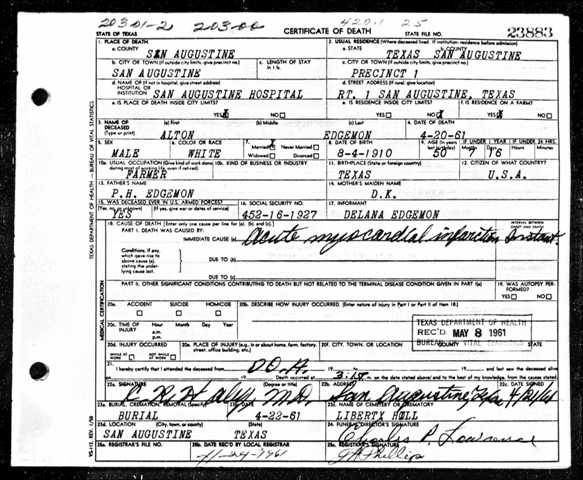 20301-2 20300 420.1 25
STATE OF TEXAS CERTIFICATE OF DEATH STATE FILE NO. 23883
1. PLACE OF DEATH 2. USUAL RESIDENCE (Where deceased lived. If institution: residence before admission)
a. COUNTY SAN AUGUSTINE a. STATE TEXAS b. COUNTY SAN AUGUSTINE
b. CITY OR TOWN (If outside city limits, give precinct no.) c. LENGTH OF STAY in 1 b. c. CITY OR TOWN (If outside city limits, give precinct no.)
SAN AUGUSTINE PRECINCT 1
d. NAME OF (If not in hospital, give street address) HOSPITAL OR INSTITUTION SAN AUGUSTINE HOSPITAL d. STREET ADDRESS (If rural, give location) RT. 1 SAN AUGUSTINE, TEXAS
e. IS PLACE OF DEATH INSIDE CITY LIMITS? e. IS RESIDENCE INSIDE CITY LIMITS? f. IS RESIDENCE ON A FARM?
YES NO YES NO YES NO
3. NAME OF DECEASED (Type or print) (a) First (b) Middle (c) Last 4. DATE OF DEATH
ALTON EDGEMON 4-20-61
5. SEX 6. COLOR OR RACE 7. Married Never Married Widowed Divorced 8. DATE OF BIRTH 9. AGE (In years last birthday) IF UNDER 1 YEAR IF UNDER 24 HRS.
MALE WHITE 8-4-1910 50 Months Days Hours Minutes
10a. USUAL OCCUPATION (Give kind of work done 10b. KIND OF BUSINESS OR INDUSTRY 11. BIRTHPLACE (State or foreign country) 12. CITIZEN OF WHAT COUNTRY?
FARMER TEXAS U.S.A.
13. FATHER'S NAME 14. MOTHER'S MAIDEN NAME
P.H. EDGEMON D.K.
15. WAS DECEASED EVER IN U.S. ARMED FORCES? 16. SOCIAL SECURITY NO. 17. INFORMANT
(Yes, no, or unknown) (If yes, give war or dates of service)
YES 452-16-1927 DELANA EDGEMON
18. CAUSE OF DEATH (Enter only one cause per line for (a), (b), and (c).) INTERVAL BETWEEN ONSET AND DEATH
PART I. DEATH WAS CAUSED BY:
IMMEDIATE CAUSE (a) Acute myocardial infarction Instant.
Conditions, if any, which gave rise to above cause (a), stating the underlying cause last.
DUE TO (b)
DUE TO (c)
PART II. OTHER SIGNIFICANT CONDITIONS CONTRIBUTING TO DEATH BUT NOT RELATED TO THE TERMINAL DISEASE CONDITION GIVEN IN PART I(a) 19. WAS AUTOPSY PERFORMED?
YES NO
20a. ACCIDENT SUICIDE HOMICIDE 20b. DESCRIBE HOW INJURY OCCURRED. (Enter nature of injury in Part I or Part II of item 18.)
20c. TIME OF INJURY Hour Month Day Year
a.m.
p.m.
TEXAS DEPARTMENT OF HEALTH
REC'D MAY 8 1961
BUREAU VITAL STATISTICS
20d. INJURY OCCURRED 20e. PLACE OF INJURY (e.g., in or about home, farm, factory, street, office building, etc.) 20f. CITY, TOWN, OR LOCATION COUNTY STATE
WHILE AT WORK NOT WHILE AT WORK
21. I hereby certify that I attended the deceased from D.O.A. 19 to 19 and last saw the deceased alive
on 19 Death occurred at m. on the date stated above; and to the best of my knowledge, from the causes stated.
22a. SIGNATURE (Degree or title) 22b. ADDRESS 22c. DATE SIGNED
M.D. San Augustine, Texas
23a. BURIAL, CREMATION, REMOVAL (Specify) 23b. DATE 23c. NAME OF CEMETERY OR CREMATORY
BURIAL 4-22-61 LIBERTY HILL
23d. LOCATION (City, town, or county) (State) 24. FUNERAL DIRECTOR'S SIGNATURE
SAN AUGUSTINE TEXAS Charles P. Lawrence
25a. REGISTRAR'S FILE NO. 25b. DATE REC'D BY LOCAL REGISTRAR 25c. REGISTRAR'S SIGNATURE
Phillips
TEXAS DEPARTMENT OF HEALTH — BUREAU OF VITAL STATISTICS
MEDICAL CERTIFICATION
VS-112, REV. 1/58